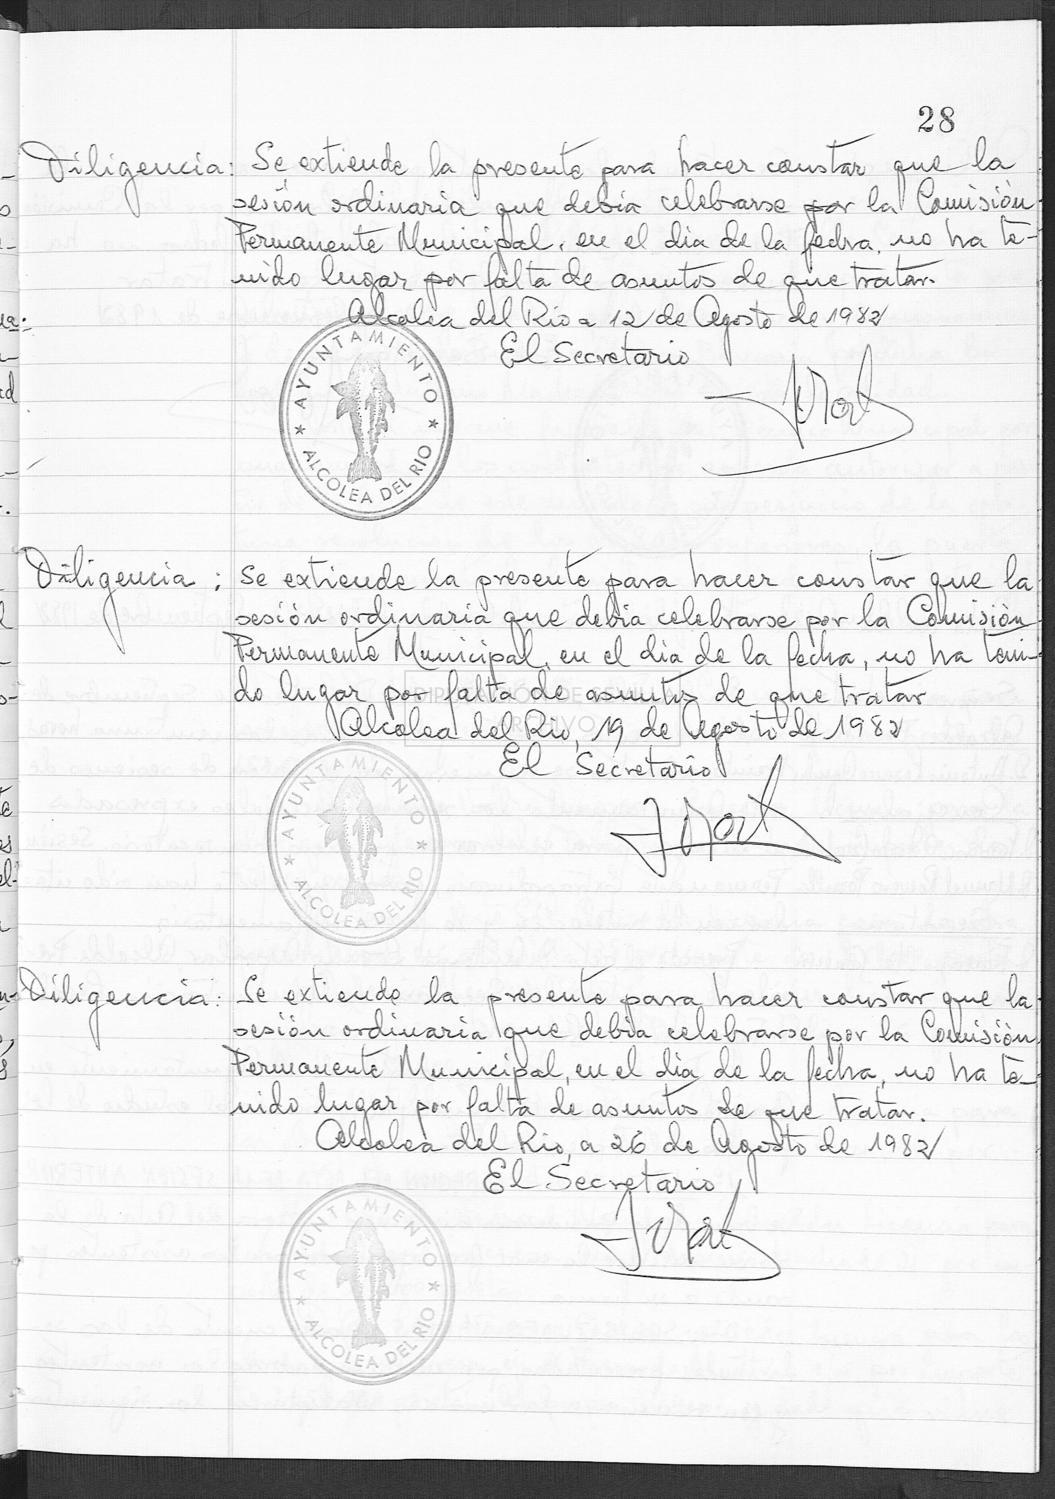 28
Diligencia: Se extiende la presente para hacer constar que la
sesión ordinaria que debia celebrarse por la Comisión
Permanente Municipal, en el dia de la fecha, no ha te-
nido lugar por falta de asuntos de que tratar.
Alcolea del Rio a 12 de Agosto de 1982
El Secretario
AYUNTAMIENTO
ALCOLEA DEL RIO
Diligencia: Se extiende la presente para hacer constar que la
sesión ordinaria que debia celebrarse por la Comisión
Permanente Municipal, en el dia de la fecha, no ha teni-
do lugar por falta de asuntos de que tratar
Alcolea del Rio, 19 de Agosto de 1982
El Secretario
AYUNTAMIENTO
ALCOLEA DEL RIO
Diligencia: Se extiende la presente para hacer constar que la
sesión ordinaria que debia celebrarse por la Comisión
Permanente Municipal, en el dia de la fecha, no ha te-
nido lugar por falta de asuntos de que tratar.
Alcolea del Rio, a 26 de Agosto de 1982
El Secretario
AYUNTAMIENTO
ALCOLEA DEL RIO